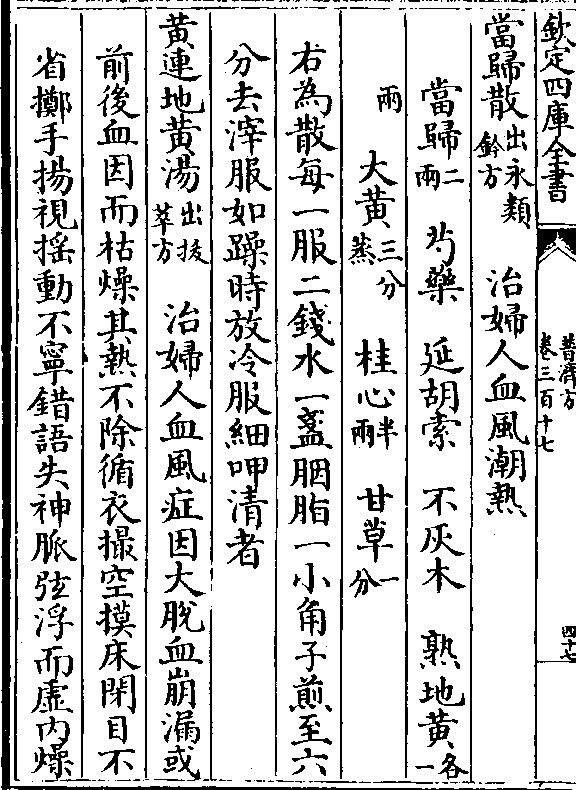 欽定四庫全書
普濟方
卷三百十七
四十七
當歸散出永類鈐方 治婦人血風潮熱
當歸二兩 芍藥 延胡索 不灰木 熟地黄各一
兩 大黄三分蒸 桂心半兩 甘草一分
右為散每一服二錢水一盞胭脂一小角子煎至六
分去滓服如躁時放冷服細呷清者
黄連地黄湯出拔萃方 治婦人血風症因大脫血崩漏或
前後血因而枯燥其熱不除循衣撮空摸床閉目不
省擲手揚視揺動不寧錯語失神脈弦浮而虛内燥